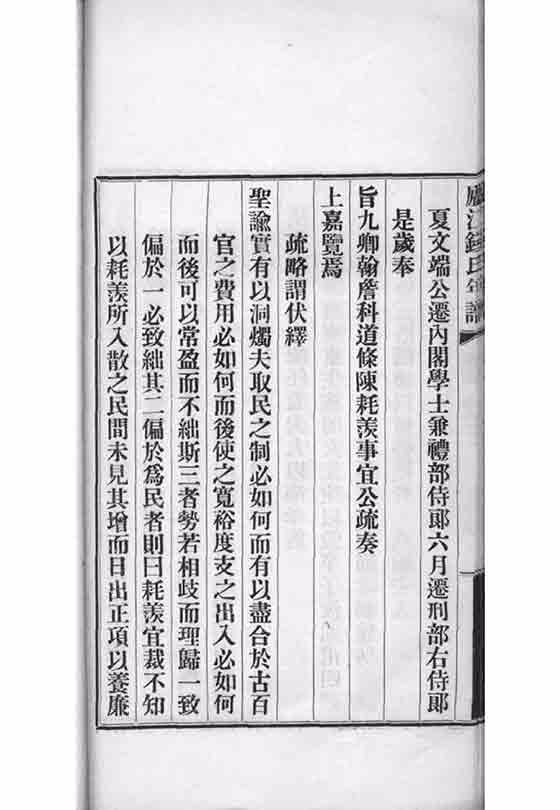 廬江錢氏年譜
夏文端公遷內閣學士兼禮部侍郎六月遷刑部右侍郎
是歲奉
旨九卿翰詹科道條陳耗羨事宜公疏奏
上嘉覽焉
疏略謂伏繹
聖諭實有以洞燭夫取民之制必如何而有以盡合於古百
官之費用必如何而後使之寬裕度支之出入必如何
而後可以常盈而不絀斯三者勢若相歧而理歸一致
偏於一必致絀其二偏於爲民者則曰耗羨宜裁不知
以耗羨所入散之民間未見其增而日出正項以養廉